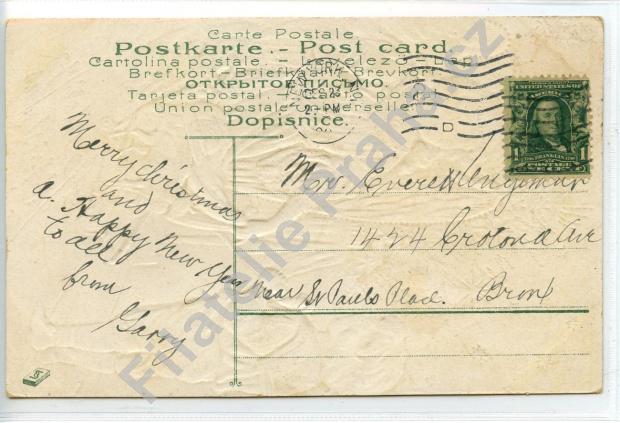 Carte Postale.
Postkarte.- Post card.
Cartolina postale.
Brefkort-Briefkaart-Brevkort.
ОТКРЫТОЕ ПИСЬМО.
Tarjeta postal.
Union postale universelle.
Dopisnice.
2-PM
D
UNITED STATES OF AMERICA
FRANKLIN
POSTAGE
Merry Christmas
and
a. Happy New Year
to all
from
Garry
Mr. Everett
1424 Crotona Ave
Near St Pauls Place. Bronx
Filatelie Praha.cz